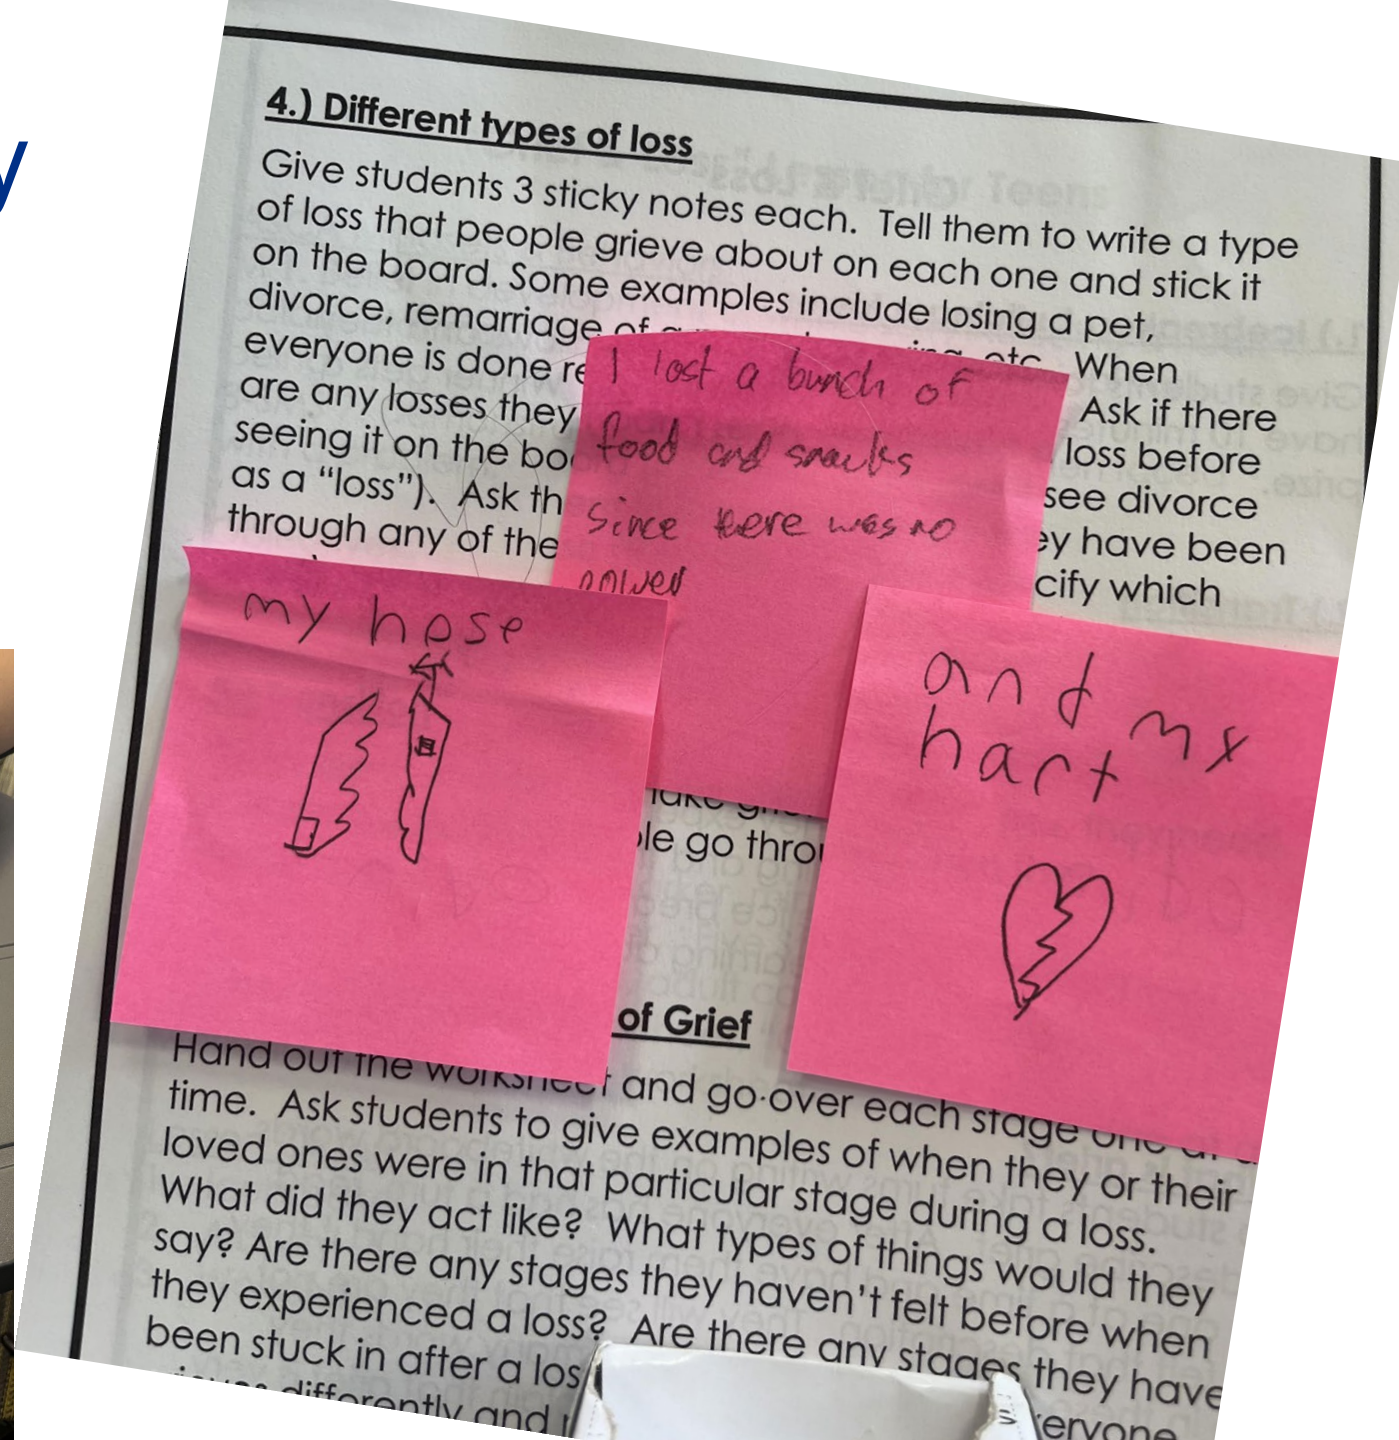 y
4.) Different types of loss
Give students 3 sticky notes each. Tell them to write a type
of loss that people grieve about on each one and stick it
on the board. Some examples include losing a pet,
divorce, remarriage of etc. When
everyone is done
are any losses they Ask if there
seeing it on the loss before
as a "loss"). Ask see divorce
through any of the have been
which
I lost a bunch of
food and snacks
since there was no
power
my hose
and my
hart
go
of Grief
Hand out the worksheet and go over each stage one at
time. Ask students to give examples of when they or their
loved ones were in that particular stage during a loss.
What did they act like? What types of things would they
say? Are there any stages they haven't felt before when
they experienced a loss? Are there any stages they have
been stuck in after a
differently and